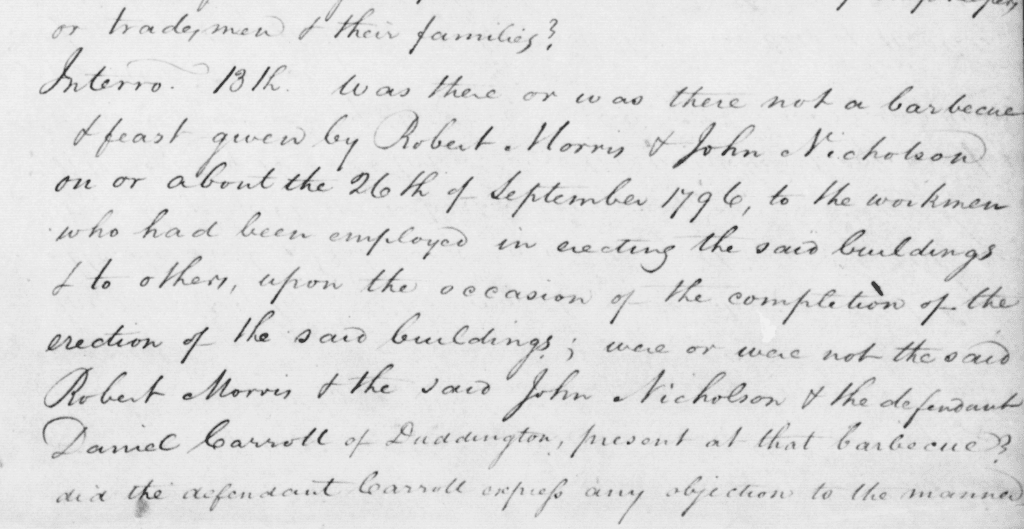 or tradesmen & their families?
Interro. 13th. Was there or was there not a barbecue
& feast given by Robert Morris & John Nicholson
on or about the 26th of September 1796, to the workmen
who had been employed in erecting the said buildings
& to others, upon the occasion of the completion of the
erection of the said buildings; were or were not the said
Robert Morris & the said John Nicholson & the defendant
Daniel Carroll of Duddington, present at that barbecue?
did the defendant Carroll express any objection to the manner